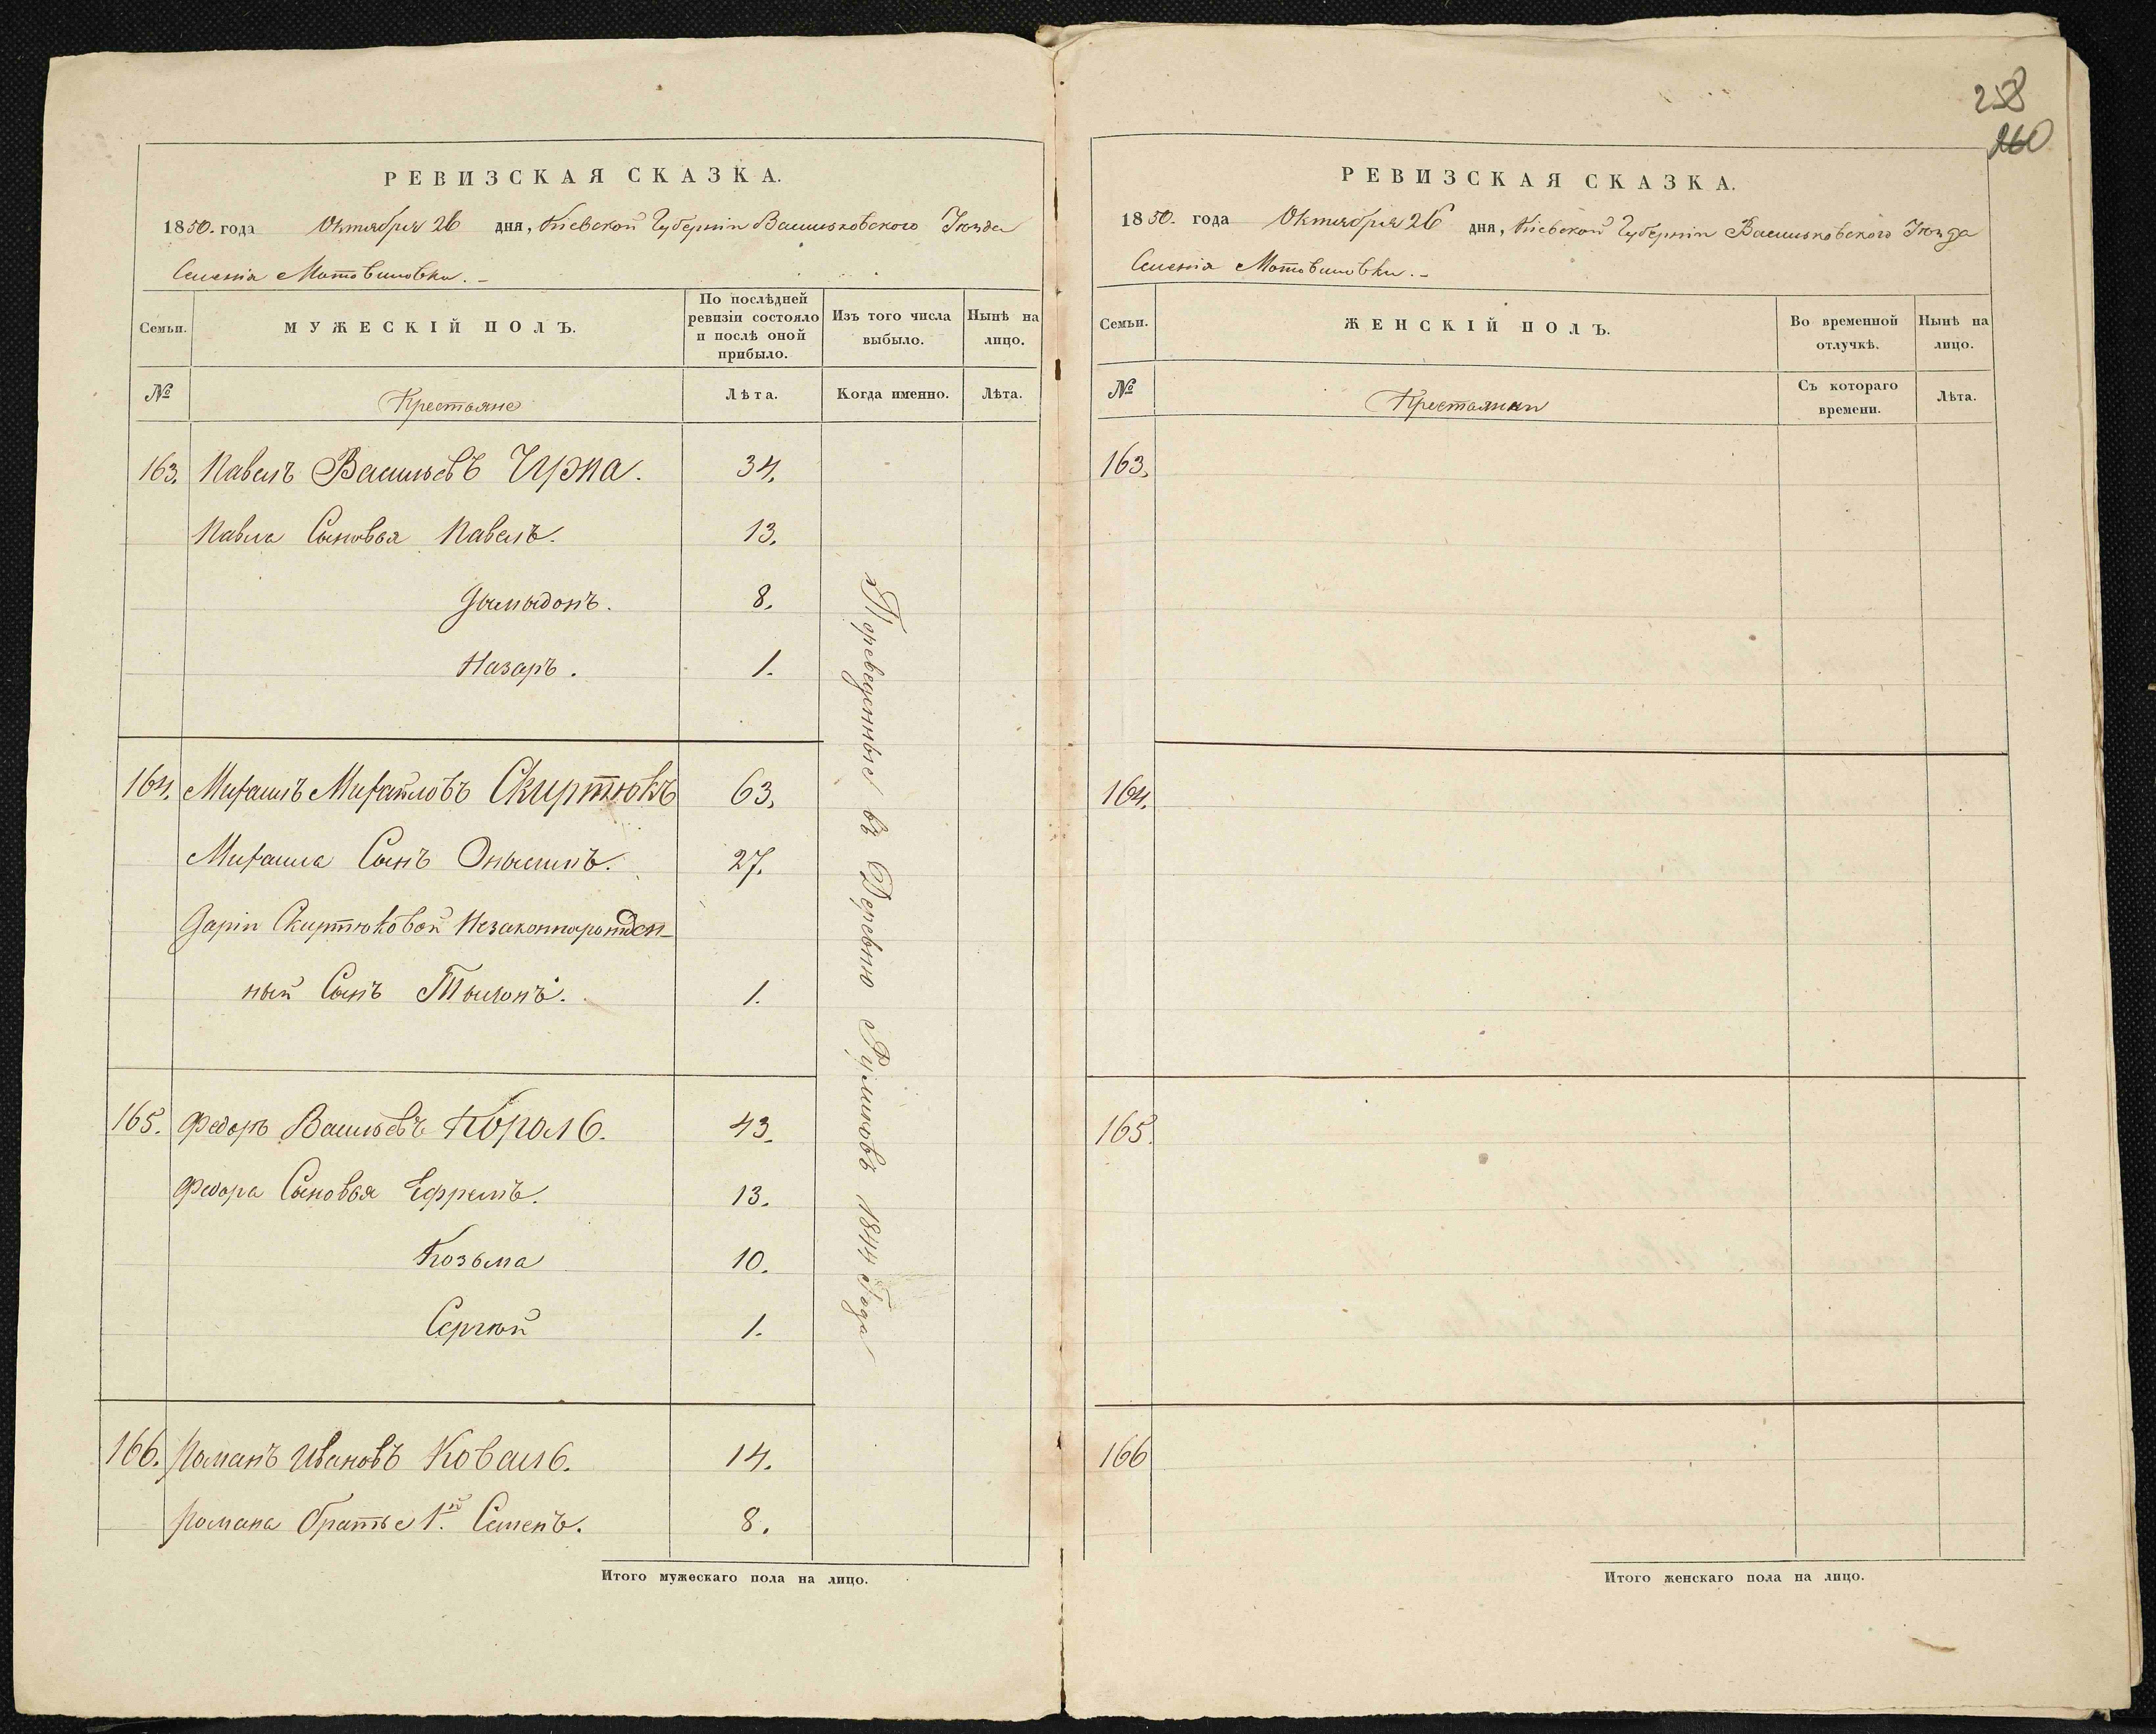 258
260
РЕВИЗСКАЯ СКАЗКА.
1850. года Октября 26 дня, Кіевской Губерніи Васильковского Уѣзда
Селенія Мотовиловки.
Семьи. МУЖЕСКІЙ ПОЛЪ. По послѣдней ревизіи состояло и послѣ оной прибыло. Изъ того числа выбыло. Нынѣ на лицо.
№ Крестьяне Лѣта. Когда именно. Лѣта.
163. Павелъ Васильевъ 34.
Павла Сыновья Павелъ. 13.
8.
Назаръ. 1.
164. Михаилъ Михайловъ Скиртюкъ 63.
Михаила Сынъ 27.
Даріи Скиртюковой Незаконнорожден-
ный Сынъ 1.
165. Федоръ Васильевъ Король. 43.
Федора Сыновья Ефремъ. 13.
Козьма 10.
Сергѣй 1.
166. Романъ Ивановъ Коваль. 14.
Романа братье 1й. Семенъ. 8.
Переведенные въ Деревню 1844 Года
Итого мужескаго пола на лицо.
РЕВИЗСКАЯ СКАЗКА.
1850. года Октября 26 дня, Кіевской Губерніи Васильковского Уѣзда
Селенія Мотовиловки.
Семьи. ЖЕНСКІЙ ПОЛЪ. Во временной отлучкѣ. Нынѣ на лицо.
№ Крестьянки Съ котораго времени. Лѣта.
163.
164.
165.
166
Итого женскаго пола на лицо.